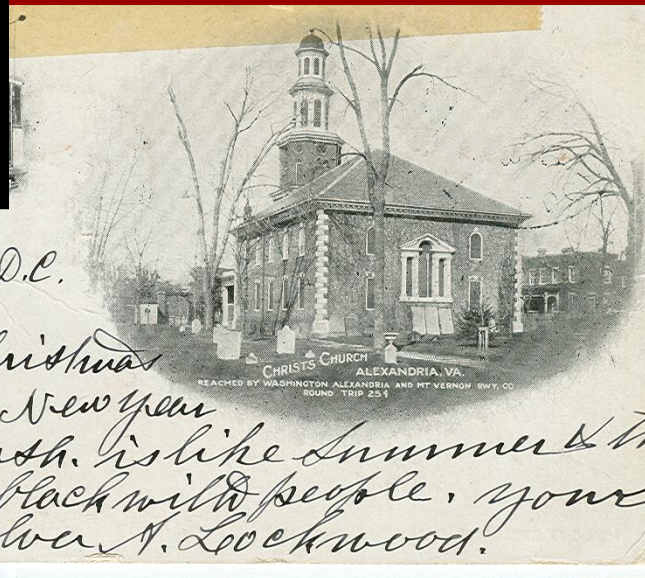 D.C.
CHRISTS CHURCH
ALEXANDRIA, VA.
REACHED BY WASHINGTON ALEXANDRIA AND MT VERNON RWY. CO
ROUND TRIP 25¢
ristmas
New Year
sh. is like Summer & th
black with people. your
A. Lockwood.